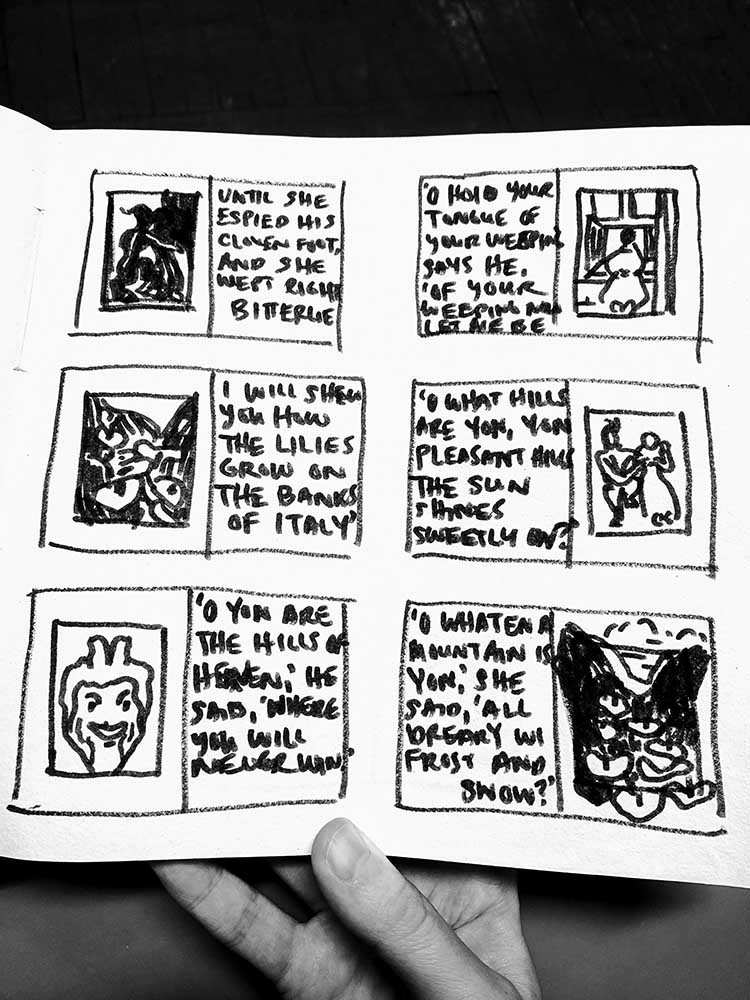 UNTIL SHE
ESPIED HIS
CLOVEN FOOT,
AND SHE
WEPT RIGHT
BITTERLIE
'O HOLD YOUR
TONGUE OF
YOUR WEEPIN
SAYS HE,
'OF YOUR
WEEPING NOW
LET ME BE
I WILL SHEW
YOU HOW
THE LILIES
GROW ON
THE BANKS
OF ITALY'
'O WHAT HILLS
ARE YON, YON
PLEASANT HILLS
THE SUN
SHINES
SWEETLY ON?'
'O YON ARE
THE HILLS OF
HEAVEN,' HE
SAID, 'WHERE
YOU WILL
NEVER WIN.'
'O WHATEN A
MOUNTAIN IS
YON,' SHE
SAID, 'ALL
DREARY WI
FROST AND
SNOW?'